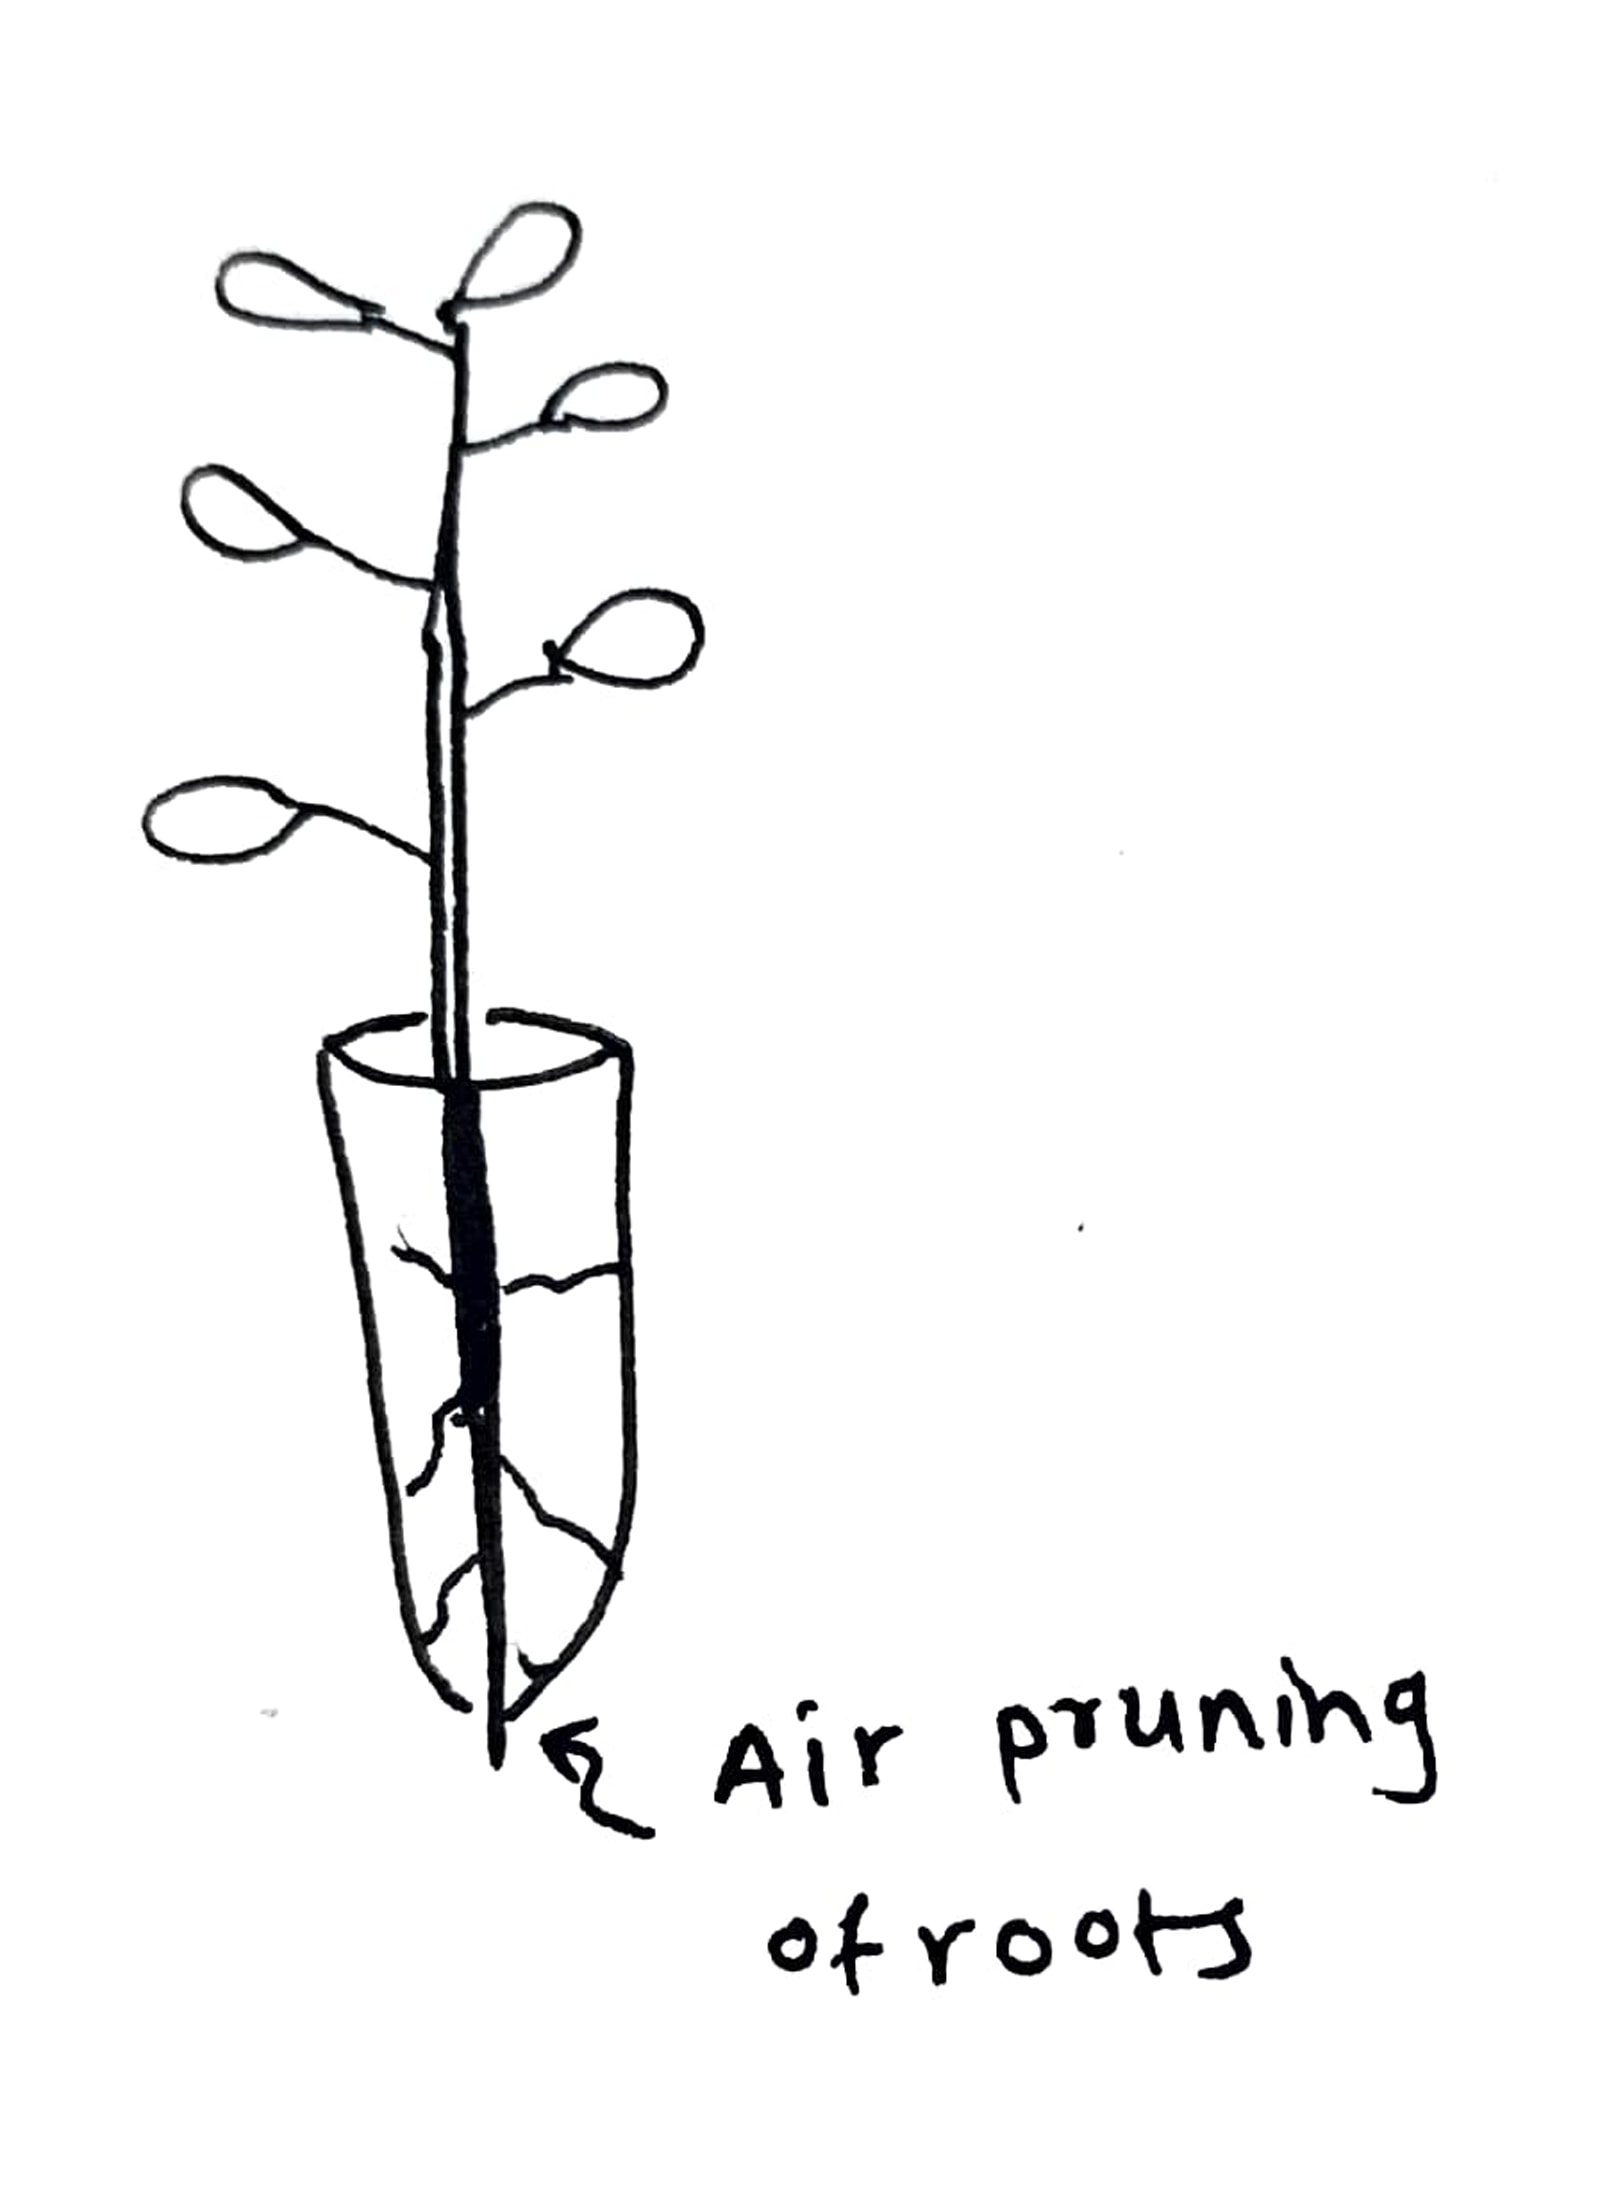 Air pruning
of roots